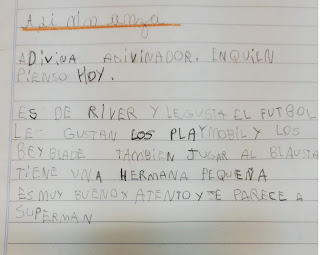 Adivinanza
ADIVINA ADIVINADOR. ENQUIEN
PIENSO HOY.
ES DE RIVER Y LEGUSTA EL FUTBOL
LE GUSTAN LOS PLAYMOBIL Y LOS
BEYBLADE TAMBIEN JUGAR AL
TIENE UNA HERMANA PEQUEÑA
ES MUY BUENO Y ATENTO Y SE PARECE A
SUPERMAN